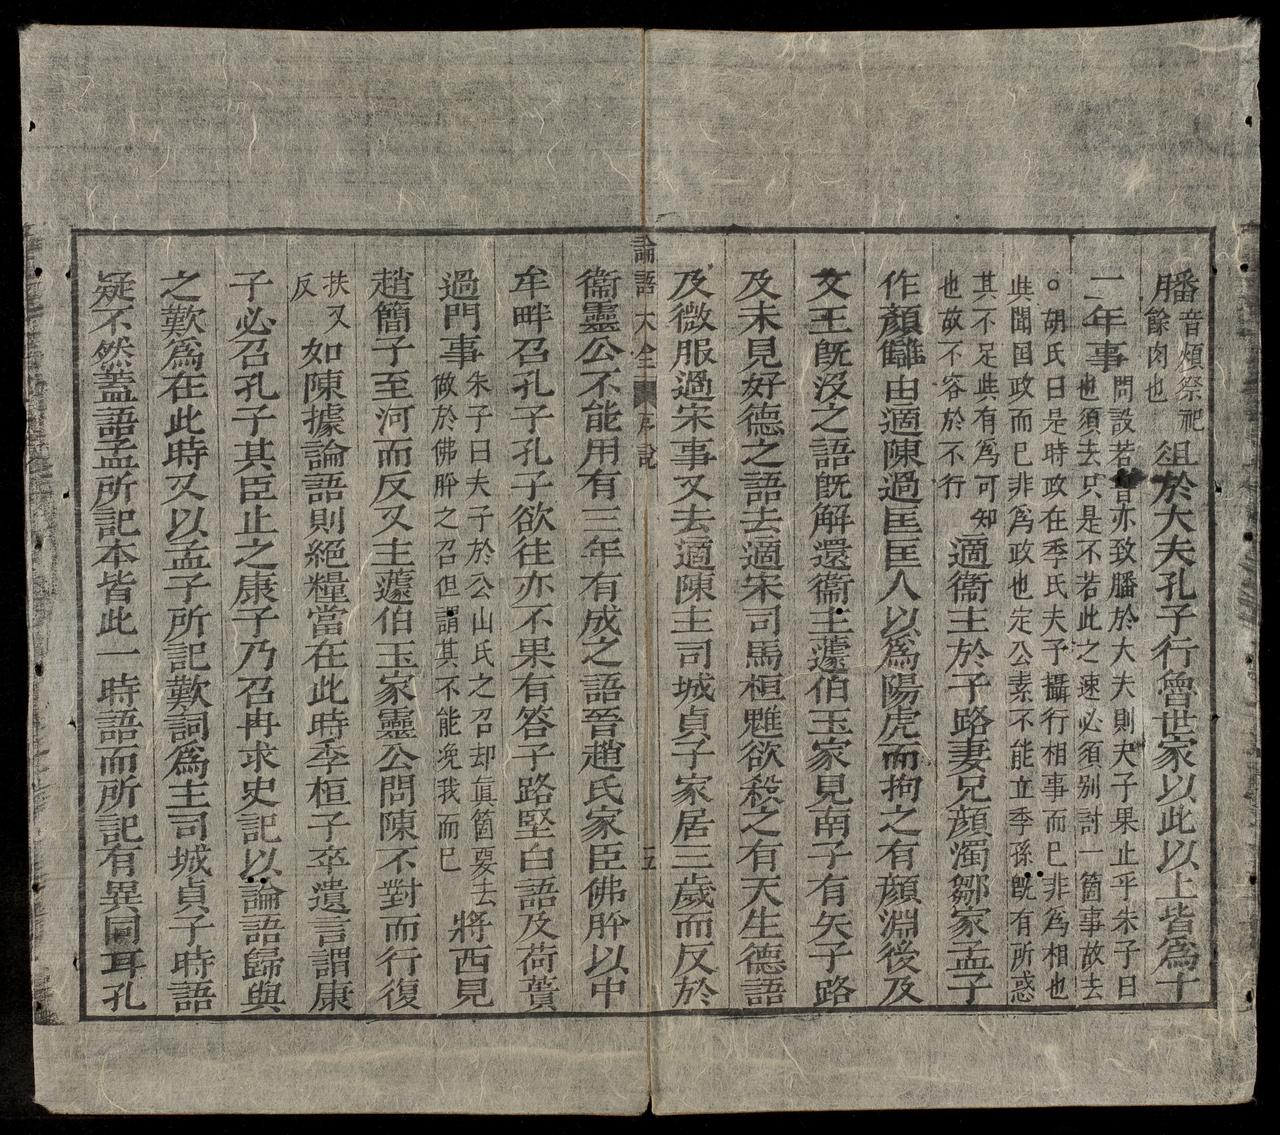 膰音煩祭祀
餘肉也
俎於大夫孔子行魯世家以此以上皆爲十
二年事
問設若亦致膰於大夫則夫子果止乎朱子曰
也須去只是不若此之速必須別討一箇事故去
○胡氏曰是時政在季氏夫子攝行相事而已非爲相也
与聞国政而已非爲政也定公素不能立季孫旣有所惑
其不足与有爲可知
也故不容於不行
適衞主於子路妻兄顔濁鄒家孟子
作顔讎由適陳過匡匡人以爲陽虎而拘之有顔淵後及
文王旣沒之語旣解還衞主蘧伯玉家見南子有矢子路
及未見好德之語去適宋司馬桓魋欲殺之有天生德語
及微服過宋事又去適陳主司城貞子家居三歲而反於
論語大全 序說 五
衞靈公不能用有三年有成之語晉趙氏家臣佛肸以中
牟畔召孔子孔子欲往亦不果有答子路堅白語及荷蕢
過門事
朱子曰夫子於公山氏之召却眞箇要去
做於佛肸之召但謂其不能浼我而已
將西見
趙簡子至河而反又主蘧伯玉家靈公問陳不對而行復
扶又
反
如陳據論語則絕糧當在此時季桓子卒遺言謂康
子必召孔子其臣止之康子乃召冉求史記以論語歸與
之歎爲在此時又以孟子所記歎詞爲主司城貞子時語
疑不然蓋語孟所記本皆此一時語而所記有異同耳孔